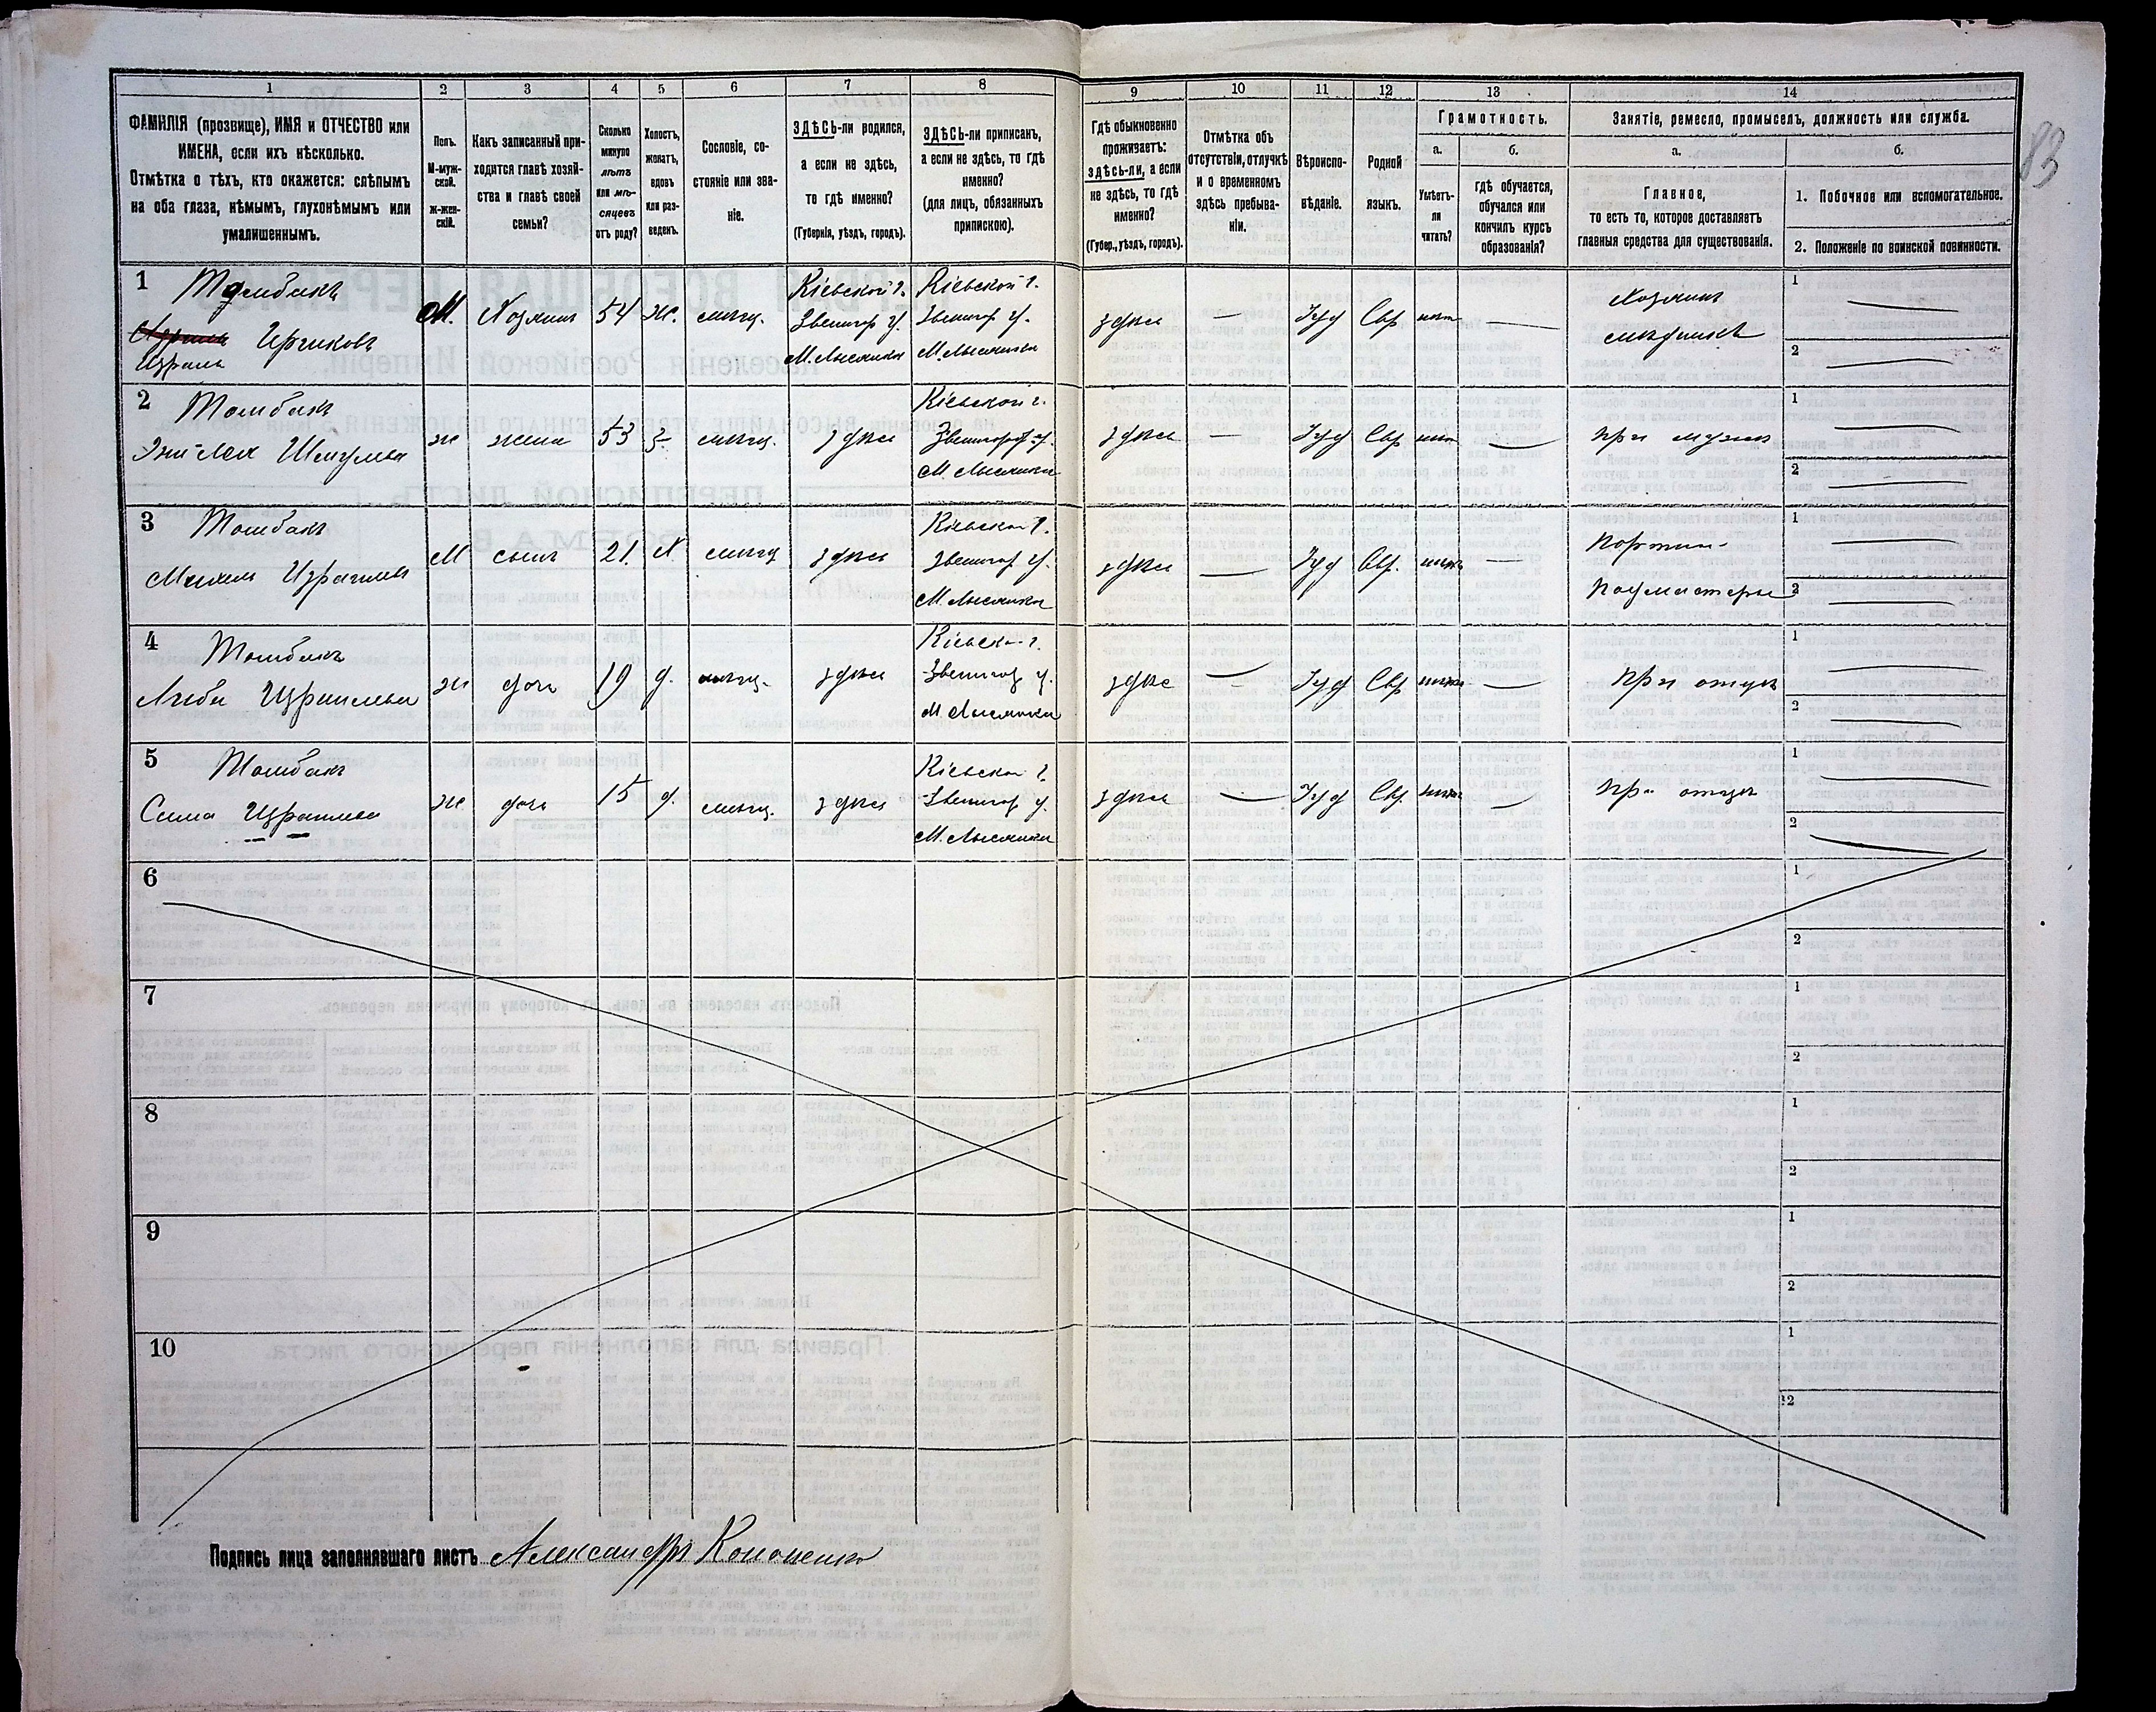 1 2 3 4 5 6 7 8 9 10 11 12 13 14
83
ФАМИЛІЯ (прозвище), ИМЯ и ОТЧЕСТВО или
ИМЕНА, если ихъ нѣсколько.
Отмѣтка о тѣхъ, кто окажется: слѣпымъ
на оба глаза, нѣмымъ, глухонѣмымъ или
умалишеннымъ.
Полъ.
М-муж-
ской.
Ж-жен-
скій.
Какъ записанный при-
ходится главѣ хозяй-
ства и главѣ своей
семьи?
Сколько
минуло
лѣтъ
или мѣ-
сяцевъ
отъ роду?
Холостъ,
женатъ,
вдовъ
или раз-
веденъ.
Сословіе, со-
стояніе или зва-
ніе.
ЗДѢСЬ-ли родился,
а если не здѣсь,
то гдѣ именно?
(Губернія, уѣздъ, городъ).
ЗДѢСЬ-ли приписанъ,
а если не здѣсь, то гдѣ
именно?
(для лицъ, обязанныхъ
припискою).
Гдѣ обыкновенно
проживаетъ:
здѣсь-ли, а если
не здѣсь, то гдѣ
именно?
(Губер., уѣздъ, городъ).
Отмѣтка объ
отсутствіи, отлучкѣ
и о временномъ
здѣсь пребыва-
ніи.
Вѣроиспо-
вѣданіе.
Родной
языкъ.
Грамотность.
а.
Умѣетъ-
ли
читать?
б.
гдѣ обучается,
обучался или
кончилъ курсъ
образованія?
Занятіе, ремесло, промыселъ, должность или служба.
а.
Главное,
то есть то, которое доставляетъ
главныя средства для существованія.
б.
1. Побочное или вспомогательное.
2. Положеніе по воинской повинности.
1
Ицковъ
Израиль
М. Хозяинъ 54 ж. мѣщ.
Кіевской г.
Звенигор у.
М. Лысянка
Кіевской г.
Звенигор у.
М. Лысянка
здѣсь — Іуд Евр нѣт —
Хозяинъ
1 —
2 —
2 Томбакъ
Шмулева
ж жена 53 З. мѣщ. здѣсь
Кіевской г.
Звенигород. у.
М. Лысянка
здѣсь — Іуд Евр нѣт — при мужѣ
1 —
2 —
3 Томбакъ
Израилев
М сынъ 21. Х. мѣщ здѣсь
Кіевской г.
Звенигор у.
М. Лысянка
здѣсь — Іуд Евр. —
Портн.
Подмастерье
1 —
2 —
4 Томбакъ
Израилева
ж дочь 19 д. мѣщ. здѣсь
Кіевской г.
Звенигор у.
М. Лысянка
здѣс — Іуд Евр — При отцѣ
1 —
2 —
5 Томбакъ
Сима Израилева
ж дочь 15 д. мѣщ. здѣсь
Кіевской г.
Звенигор у.
М. Лысянка
здѣсь — Іуд Евр. — При отцѣ
1 —
2 —
6 1
2
7 1
2
8 1
2
9 1
2
10 1
2
Подпись лица заполнявшаго листъ Александръ Кононенко